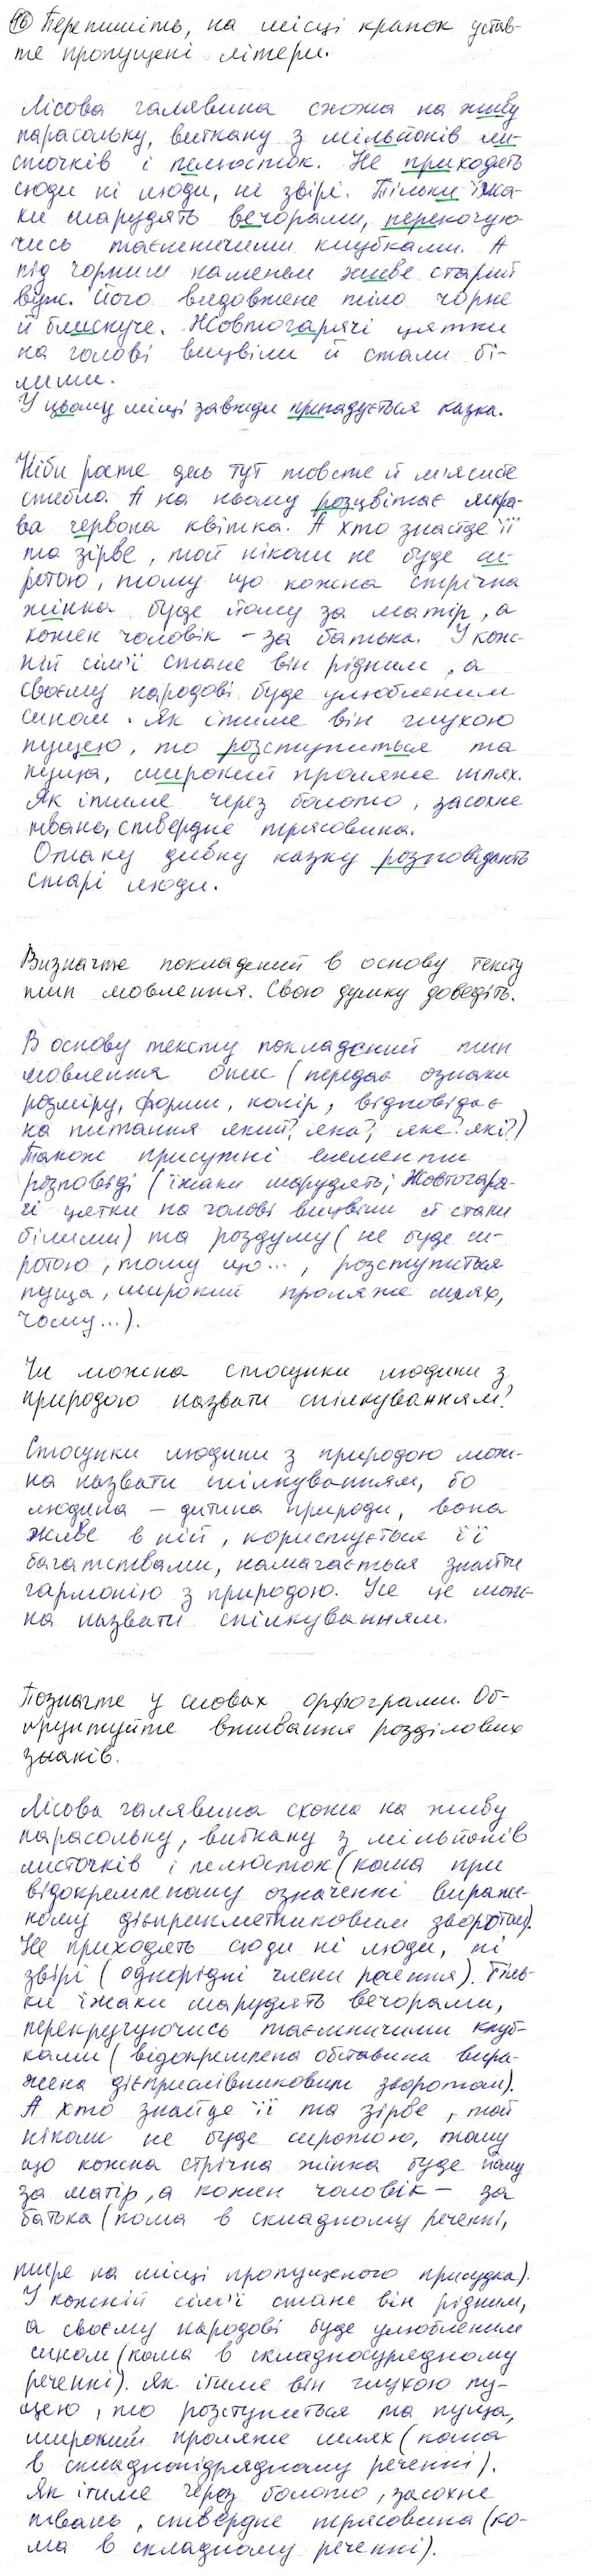 16 Перепишіть, на місці крапок устав-
те пропущені літери.
Лісова галявина схожа на живу
парасольку, виткану з мільйонів ли-
сточків і пелюсток. Не приходять
сюди ні люди, ні звірі. Тільки їжа-
ки шарудять вечорами, перекочую-
чись таємничими клубками. А
під чорним каменем живе старий
вуж. Його видовжене тіло чорне
й блискуче. Жовтогарячі цятки
на голові вицвіли й стали бі-
лими.
У цьому місці завжди пригадується казка.
Ніби росте десь тут товсте й м'ясисте
стебло. А на ньому розцвітає яскра-
ва червона квітка. А хто знайде її
та зірве, той ніколи не буде си-
ротою, тому що кожна стрічна
жінка буде йому за матір, а
кожен чоловік - за батька. У кож-
ній сім'ї стане він рідним, а
своєму народові буде улюбленим
сином. Як ітиме він глухою
пущею, то розступиться та
пуща, широкий проляже шлях.
Як ітиме через болото, засохне
твань, ствердне трясовина.
Отаку дивну казку розповідають
старі люди.
Визначте покладений в основу тексту
тип мовлення. Свою думку доведіть.
В основу тексту покладений тип
мовлення опис (передає ознаки
розміру, форми, колір, відповідає
на питання який? яка?, яке? які?)
Також присутні елементи
розповіді (їжаки шарудять; Жовтогаря-
чі цятки на голові вицвіли й стали
білими) та роздуму (не буде си-
ротою, тому що..., розступиться
пуща, широкий проляже шлях,
чому...).
Чи можна стосунки людини з
природою назвати спілкуванням?
Стосунки людини з природою мож-
на назвати спілкуванням, бо
людина - дитина природи, вона
живе в ній, користується її
багатствами, намагається знайти
гармонію з природою. Усе це мож-
на назвати спілкуванням.
Позначте у словах орфограми. Об-
ґрунтуйте вживання розділових
знаків.
Лісова галявина схожа на живу
парасольку, виткану з мільйонів
листочків і пелюсток (кома при
відокремленому означенні вираже-
ному дієприкметниковим зворотом).
Не приходять сюди ні люди, ні
звірі (однорідні члени речення). Тіль-
ки їжаки шарудять вечорами,
перекручуючись таємничими клуб-
ками (відокремлена обставина вира-
жена дієприслівниковим зворотом).
А хто знайде її та зірве, той
ніколи не буде сиротою, тому
що кожна стрічна жінка буде йому
за матір, а кожен чоловік - за
батька (кома в складному реченні,
тире на місці пропущеного присудка).
У кожній сім'ї стане він рідним,
а своєму народові буде улюбленим
сином (кома в складносурядному
реченні). Як ітиме він глухою пу-
щею, то розступиться та пуща,
широкий проляже шлях (кома
в складнопідрядному реченні).
Як ітиме через болото, засохне
твань, ствердне трясовина (ко-
ма в складному реченні).